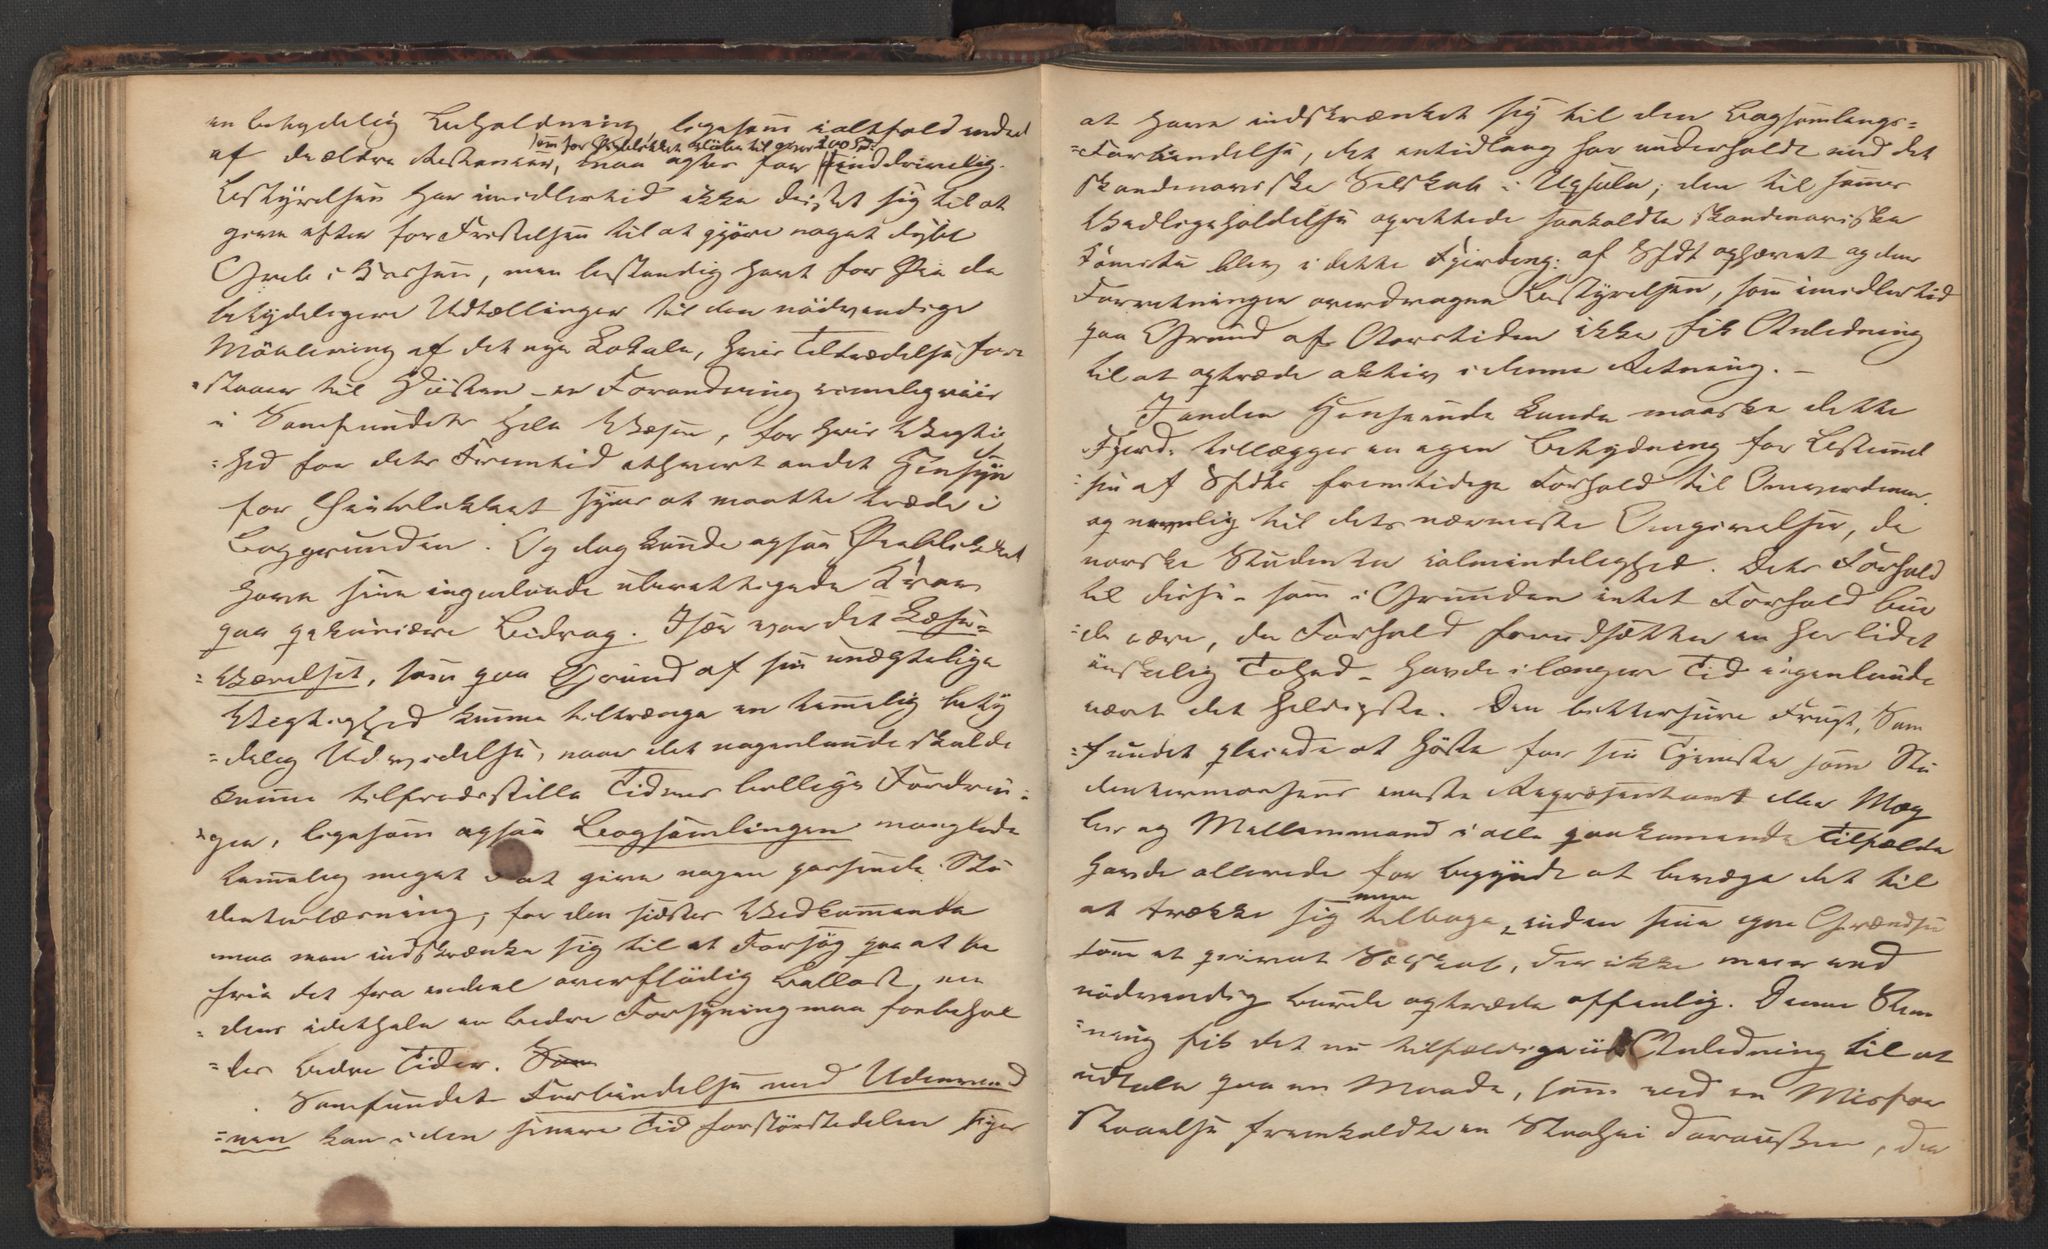 en betydelig Beholdning, ligesom ialtfald endeel
som for Øieblikket beløber til over 200 Spd.
af de ældre Restancer, maa agtes for uinddrivelig.
Bestyrelsen har imidlertid ikke dristet sig til at
give efter for Fristelsen til at gjöre noget dybt
Greb i Kassen, men bestandig havt for Øie de
betydeligere Udtællinger til den nödvendige
Möblering af det nye Lokale, hvis Tiltrædelse fore
-staaer til Hösten - en Forandring rimeligviis
i Samfundets hele Væsen, for hvis Vigtig
-hed for dets Fremtid ethvert andet Hensyn
for Øieblikket synes at maatte træde i
Baggrunden. Og dog kunde ogsaa Øieblikket
have sine ingenlunde uberettigede Krav
paa pekuniære Bidrag. Især var det Læse-
-Værelset, som paa Grund af sin unægtelige
Vigtighed kunne tiltrænge en temmelig bety
-delig Udvidelse, naar det nogenlunde skulde
kunne tilfredsstille Tidens billige Fordrin-
-ger, ligesom ogsaa Bogsamlingen manglede
temmelig meget i at give nogen passende Stu
denterlæsning; for den sidstes Vedkommende
maa man indskrænke sig til et Forsög paa at be
frie det fra endeel overflödig Ballast, me
-dens idethele en bedre Forsyning maa forbehol
-des bedre Tider. Sam
Samfundets Forbindelse med Udenverd
-nen kan i den senere Tid forstörstedelen siges
at have indskrænket sig til den Bogsamlings-
-Forbindelse, det entidlang har underholdt med det
skandinaviske Selskab i Upsala; den til sammes
Vedligeholdelse oprettede saakaldte skandinaviske
Komite blev i dette Fjerding. af Sfdt ophævet og dens
Forretninger overdragne Bestyrelsen, som imidlertid
paa Grund af Aarstiden ikke fik Anledning
til at optræde aktiv i denne Retning. -
I anden Henseende kunde maaske dette
Fjerd. tillægges en egen Betydning for Bestemmel
-sen af Sfdts fremtidige Forhold til Omverdenen
og navnlig til dets nærmeste Omgivelser, de
norske Studenter ialmindelighed. Dets Forhold
til disse - som i Grunden intet Forhold bur
-de være, da Forhold forudsætter en her lidet
önskelig Tohed - havde i længere Tid ingenlunde
været det heldigste. Den bittersure Frugt, Sam
-fundet pleiede at höste for sin Tjeneste som Stu
dentermassens eneste Repræsentant eller Mæg
ler og Mellemmand i alle paakommende Tilfælde
havde allerede for begyndt at bevæge det til
at trække sig mere tilbage, inden sine egne Grændser
som et privat Selskab, der ikke mere end
nödvendig burde optræde offentlig. Denne Stem
-ning fik det nu tilfældigviis Anledning til at
udtale paa en Maade, som ved en Misfor
staaelse fremkaldte en Stöhei derudenfra, der